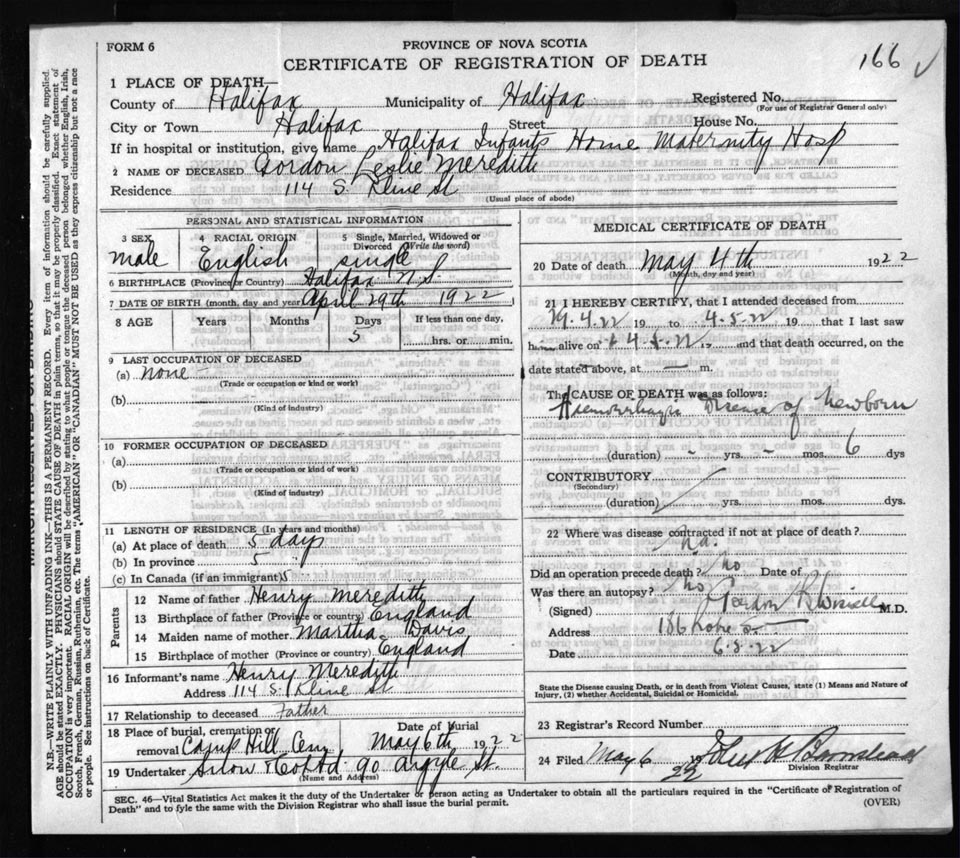 FORM 6
PROVINCE OF NOVA SCOTIA
166
CERTIFICATE OF REGISTRATION OF DEATH
1 PLACE OF DEATH—
County of Halifax Municipality of Halifax Registered No.
(For use of Registrar General only)
City or Town Halifax Street House No.
If in hospital or institution, give name Halifax Infants Home Maternity Hosp
2 NAME OF DECEASED Gordon Leslie Meredith
Residence 114 S. Kline St
(Usual place of abode)
PERSONAL AND STATISTICAL INFORMATION
3 SEX male
4 RACIAL ORIGIN English
5 Single, Married, Widowed or Divorced (Write the word) single
6 BIRTHPLACE (Province or Country) Halifax N.S.
7 DATE OF BIRTH (month, day and year) April 29th 1922
8 AGE Years Months Days 5 If less than one day, hrs. or min.
9 LAST OCCUPATION OF DECEASED
(a) none
(Trade or occupation or kind or work)
(b)
(Kind of industry)
10 FORMER OCCUPATION OF DECEASED
(a)
(Trade or occupation or kind of work)
(b)
(Kind of industry)
11 LENGTH OF RESIDENCE (In years and months)
(a) At place of death 5 day
(b) In province 5
(c) In Canada (if an immigrant) 5
Parents
12 Name of father Henry Meredith
13 Birthplace of father (Province or country) England
14 Maiden name of mother Martha Davis
15 Birthplace of mother (Province or country) England
16 Informant's name Henry Meredith
Address 114 S. Kline St
17 Relationship to deceased Father
18 Place of burial, cremation or removal Camp Hill Cem Date of Burial May 6th 1922
19 Undertaker Snow & Co Ltd 90 Argyle St.
(Name and Address)
MEDICAL CERTIFICATE OF DEATH
20 Date of death May 4th 1922
(Month, day and year)
21 I HEREBY CERTIFY, that I attended deceased from
29.4.22 19 to 4.5.22 19 that I last saw
him alive on 4.5.22 19 and that death occurred, on the
date stated above, at — m.
The CAUSE OF DEATH was as follows:
Haemorrhagic Disease of Newborn
(duration) - yrs. - mos. 6 dys
CONTRIBUTORY
(Secondary)
(duration) yrs. mos. dys.
22 Where was disease contracted if not at place of death?
Did an operation precede death? no Date of
Was there an autopsy? no
(Signed) M.D.
Address
Date
State the Disease causing Death, or in death from Violent Causes, state (1) Means and Nature of
Injury, (2) whether Accidental, Suicidal or Homicidal.
23 Registrar's Record Number
24 Filed May 6 22
Division Registrar
SEC. 46—Vital Statistics Act makes it the duty of the Undertaker or person acting as Undertaker to obtain all the particulars required in the "Certificate of Registration of
Death" and to fyle the same with the Division Registrar who shall issue the burial permit.
(OVER)
N.B.—WRITE PLAINLY WITH UNFADING INK—THIS IS A PERMANENT RECORD. Every item of information should be carefully supplied.
AGE should be stated EXACTLY. PHYSICIANS should STATE CAUSE OF DEATH in plain terms, so that it may be properly classified. Exact statement of
OCCUPATION is very important. RACIAL ORIGIN will be described by stating to what people or tongue the deceased person belonged whether English, Irish,
Scotch, French, German, Russian, Ruthenian, etc. The terms "AMERICAN" OR "CANADIAN" MUST NOT BE USED as they express citizenship but not a race
or people. See instructions on back of Certificate.